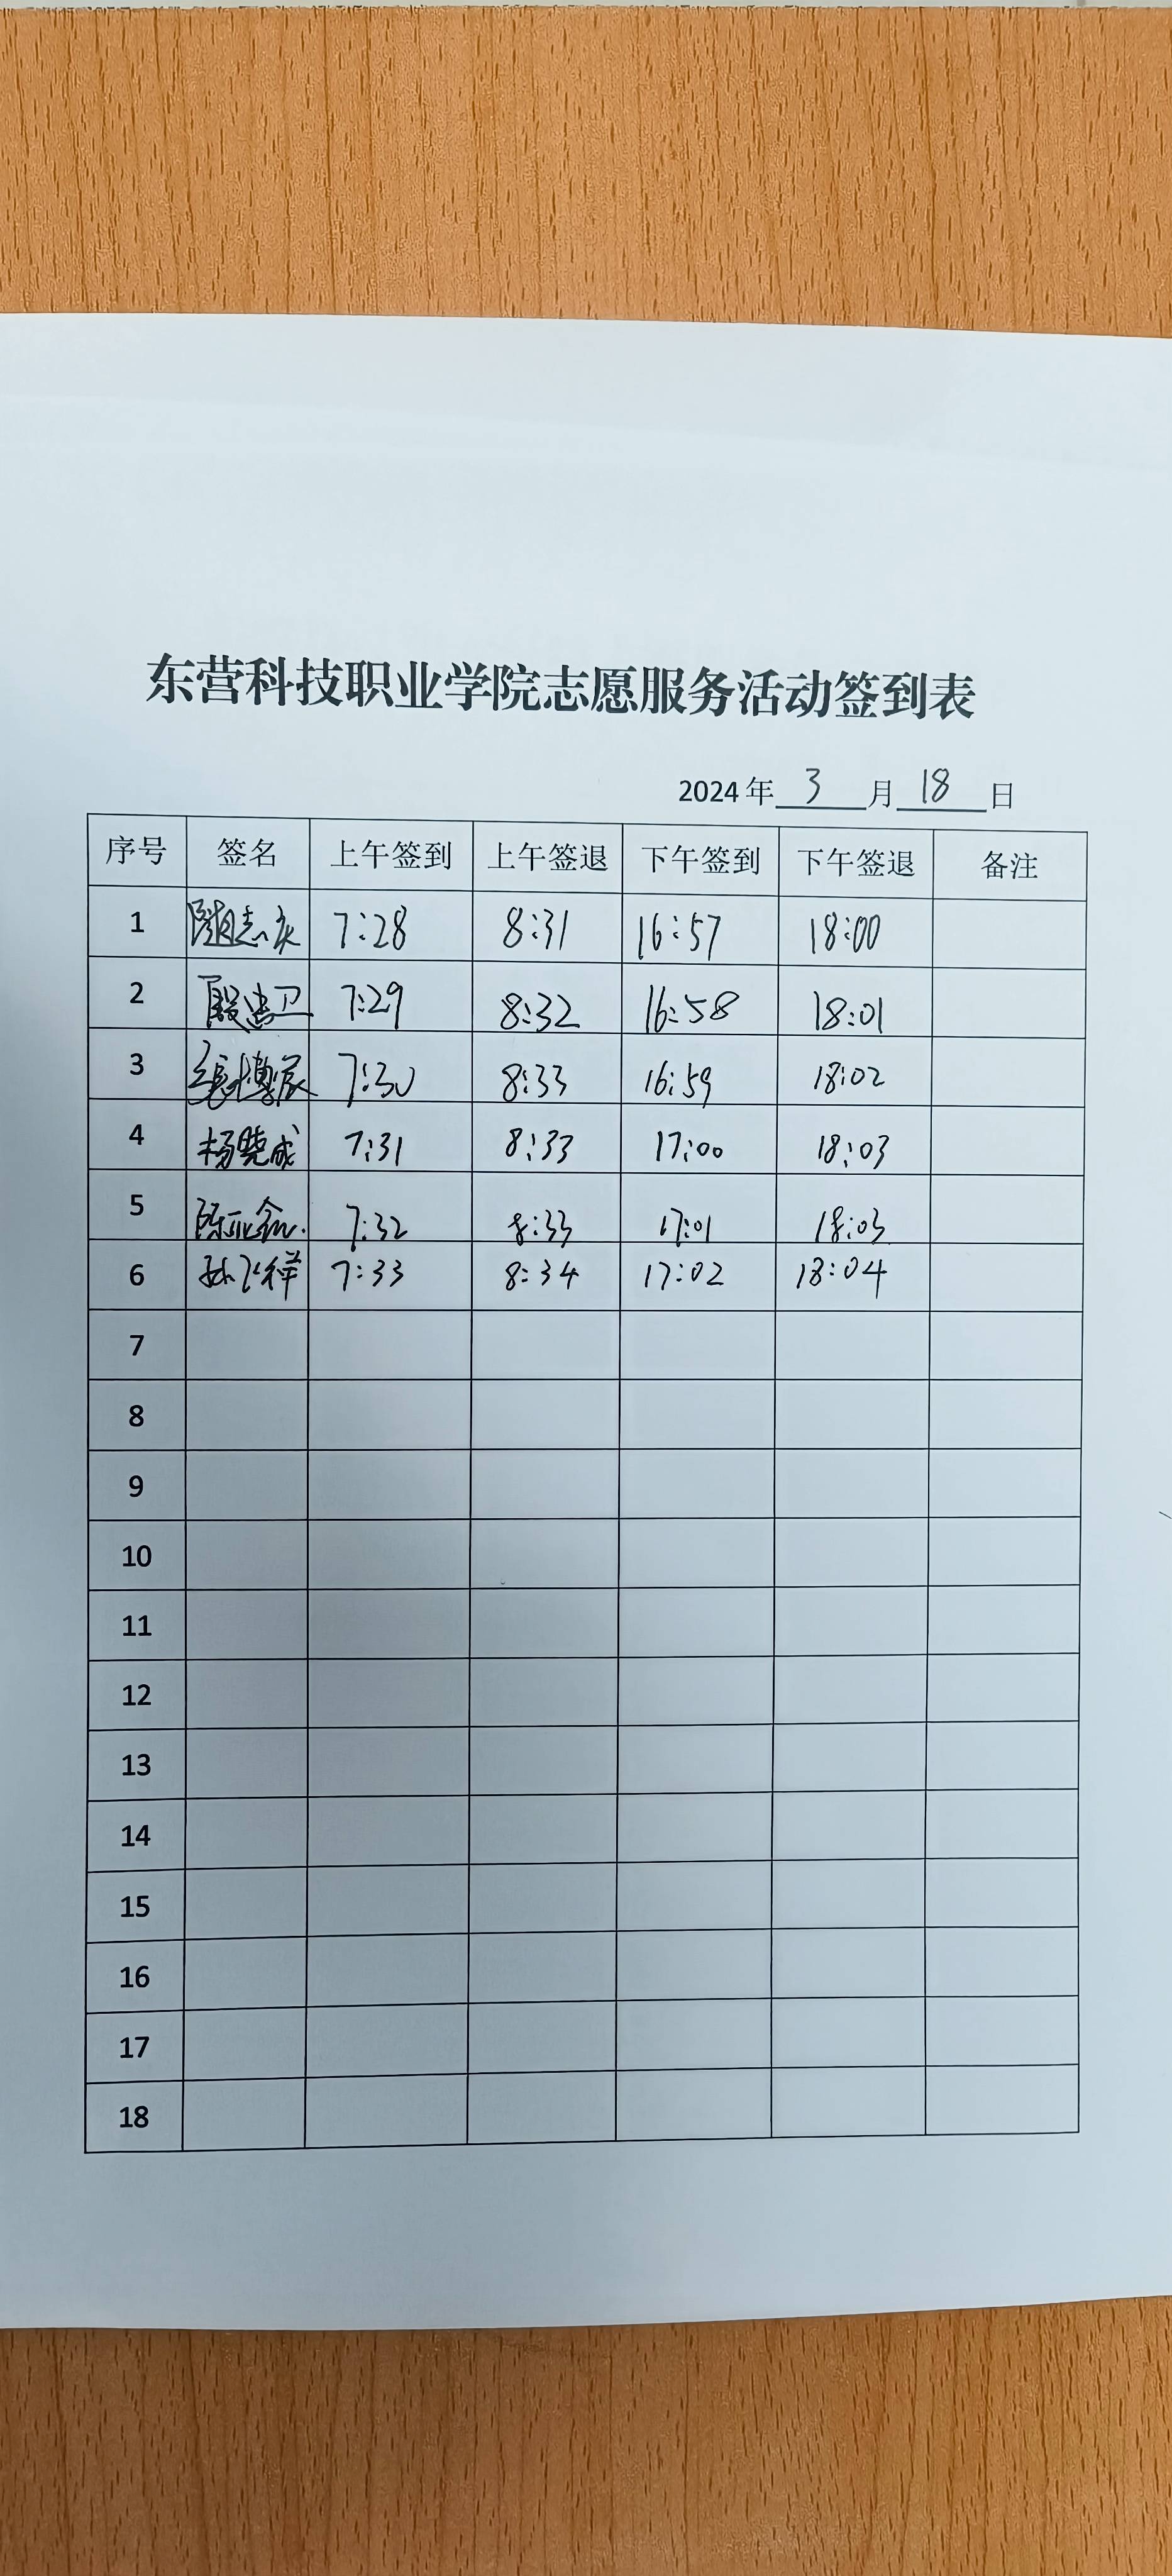 东营科技职业学院志愿服务活动签到表
2024 年 3 月 18 日
序号 签名 上午签到 上午签退 下午签到 下午签退 备注
1 7:28 8:31 16:57 18:00
2 殷建卫 7:29 8:32 16:58 18:01
3 7:30 8:33 16:59 18:02
4 杨晓成 7:31 8:33 17:00 18:03
5 7:32 8:33 17:01 18:03
6 孙飞祥 7:33 8:34 17:02 18:04
7
8
9
10
11
12
13
14
15
16
17
18